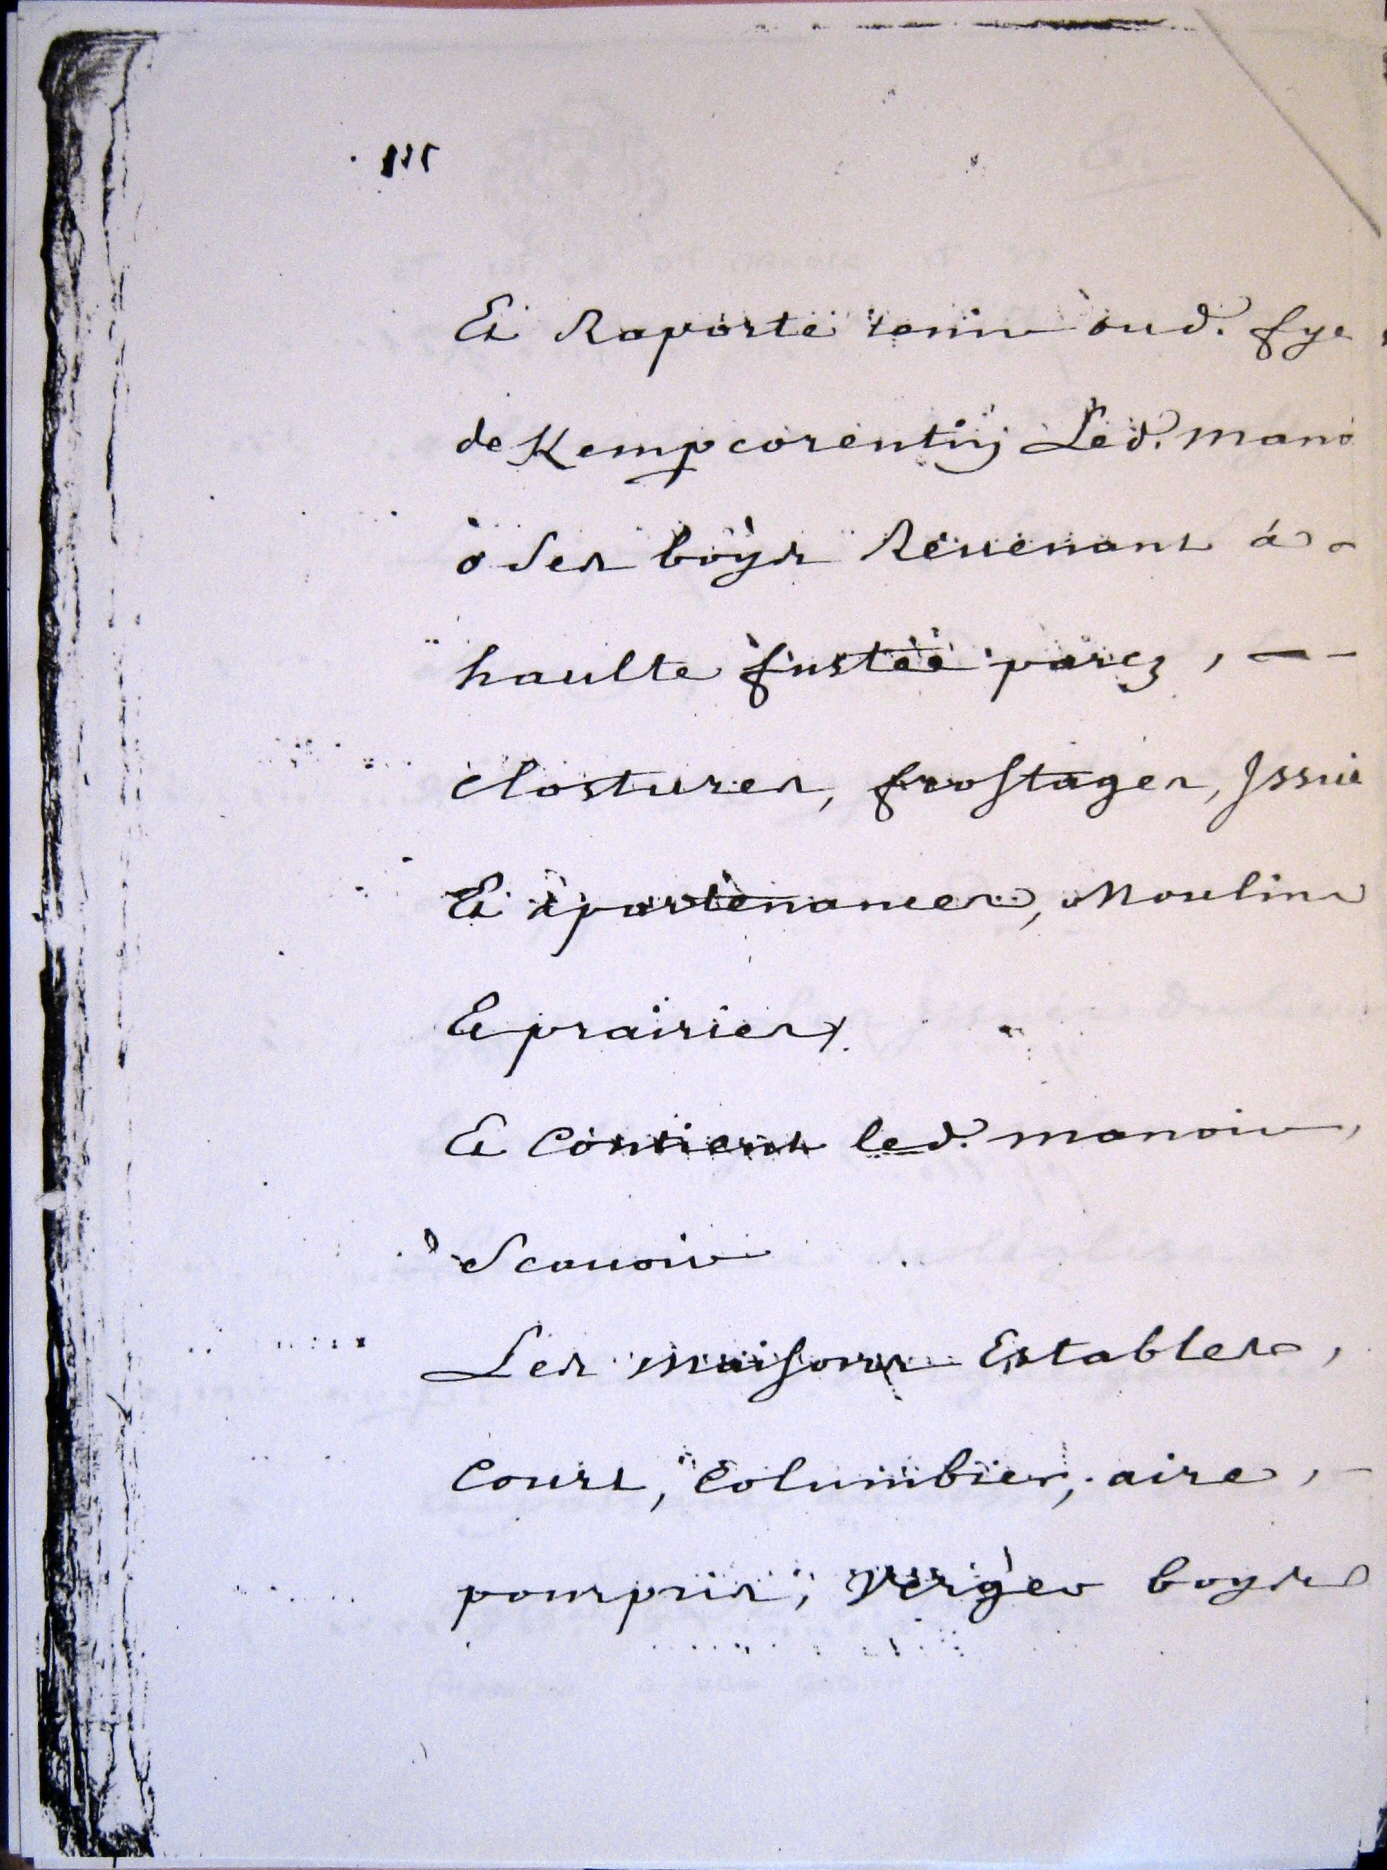 Et Raporte tenir oud. fye
de Kempcorentin Led. mano
o ses boys Revenant a
haulte fustee parcz, —
Clostures, frostages, Issue
Et apartenances, Moulins
Et prairies.
Et Contient led. manoir,
Scauoir
Les maisons Estables,
Court, Columbier, aire,
pourpris, verger boys